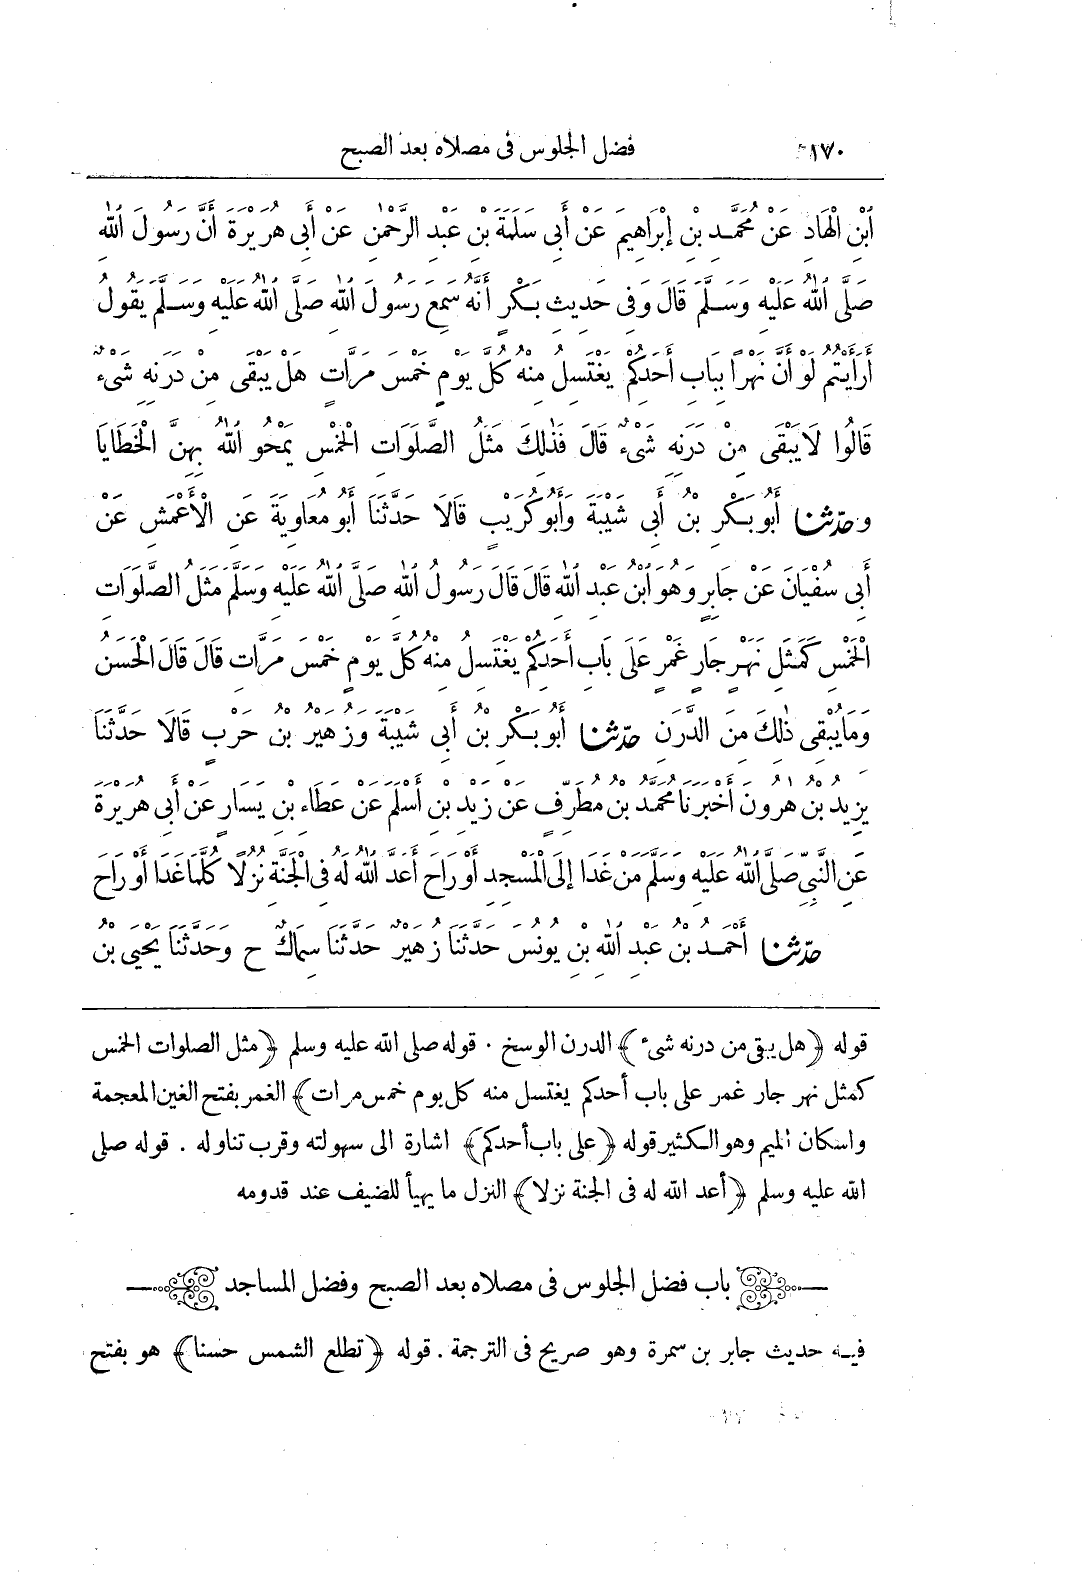 ١٧٠ فضل الجلوس فى مصلاه بعد الصبح
ٱبْنِ الْهَادِ عَنْ مُحَمَّدِ بْنِ إِبْرَاهِيمَ عَنْ أَبِى سَلَمَةَ بْنِ عَبْدِ الرَّحْمٰنِ عَنْ أَبِى هُرَيْرَةَ أَنَّ رَسُولَ اللّٰهِ
صَلَّى اللّٰهُ عَلَيْهِ وَسَلَّمَ قَالَ وَفِى حَدِيثِ بَكْرٍ أَنَّهُ سَمِعَ رَسُولَ اللّٰهِ صَلَّى اللّٰهُ عَلَيْهِ وَسَلَّمَ يَقُولُ
أَرَأَيْتُمْ لَوْ أَنَّ نَهْرًا بِبَابِ أَحَدِكُمْ يَغْتَسِلُ مِنْهُ كُلَّ يَوْمٍ خَمْسَ مَرَّاتٍ هَلْ يَبْقَى مِنْ دَرَنِهِ شَىْءٌ
قَالُوا لَا يَبْقَى مِنْ دَرَنِهِ شَىْءٌ قَالَ فَذٰلِكَ مَثَلُ الصَّلَوَاتِ الْخَمْسِ يَمْحُو اللّٰهُ بِهِنَّ الْخَطَايَا
وحدّثنا أَبُو بَكْرِ بْنُ أَبِى شَيْبَةَ وَأَبُو كُرَيْبٍ قَالَا حَدَّثَنَا أَبُو مُعَاوِيَةَ عَنِ الْأَعْمَشِ عَنْ
أَبِى سُفْيَانَ عَنْ جَابِرٍ وَهُوَ ابْنُ عَبْدِ اللّٰهِ قَالَ قَالَ رَسُولُ اللّٰهِ صَلَّى اللّٰهُ عَلَيْهِ وَسَلَّمَ مَثَلُ الصَّلَوَاتِ
الْخَمْسِ كَمَثَلِ نَهَرٍ جَارٍ غَمْرٍ عَلَى بَابِ أَحَدِكُمْ يَغْتَسِلُ مِنْهُ كُلَّ يَوْمٍ خَمْسَ مَرَّاتٍ قَالَ قَالَ الْحَسَنُ
وَمَا يُبْقِى ذٰلِكَ مِنَ الدَّرَنِ حدّثنا أَبُو بَكْرِ بْنُ أَبِى شَيْبَةَ وَزُهَيْرُ بْنُ حَرْبٍ قَالَا حَدَّثَنَا
يَزِيدُ بْنُ هٰرُونَ أَخْبَرَنَا مُحَمَّدُ بْنُ مُطَرِّفٍ عَنْ زَيْدِ بْنِ أَسْلَمَ عَنْ عَطَاءِ بْنِ يَسَارٍ عَنْ أَبِى هُرَيْرَةَ
عَنِ النَّبِىِّ صَلَّى اللّٰهُ عَلَيْهِ وَسَلَّمَ مَنْ غَدَا إِلَى الْمَسْجِدِ أَوْ رَاحَ أَعَدَّ اللّٰهُ لَهُ فِى الْجَنَّةِ نُزُلًا كُلَّمَا غَدَا أَوْ رَاحَ
حدّثنا أَحْمَدُ بْنُ عَبْدِ اللّٰهِ بْنِ يُونُسَ حَدَّثَنَا زُهَيْرٌ حَدَّثَنَا سِمَاكٌ ح وَحَدَّثَنَا يَحْيَى بْنُ
قوله ﴿هل يبقى من درنه شىء﴾ الدرن الوسخ . قوله صلى الله عليه وسلم ﴿مثل الصلوات الخمس
كمثل نهر جار غمر على باب أحدكم يغتسل منه كل يوم خمس مرات﴾ الغمر بفتح الغين المعجمة
واسكان الميم وهو الكثير قوله ﴿على باب أحدكم﴾ اشارة الى سهولته وقرب تناوله . قوله صلى
الله عليه وسلم ﴿أعد الله له فى الجنة نزلا﴾ النزل ما يهيأ للضيف عند قدومه
باب فضل الجلوس فى مصلاه بعد الصبح وفضل المساجد
فيه حديث جابر بن سمرة وهو صريح فى الترجمة . قوله ﴿تطلع الشمس حسنا﴾ هو بفتح